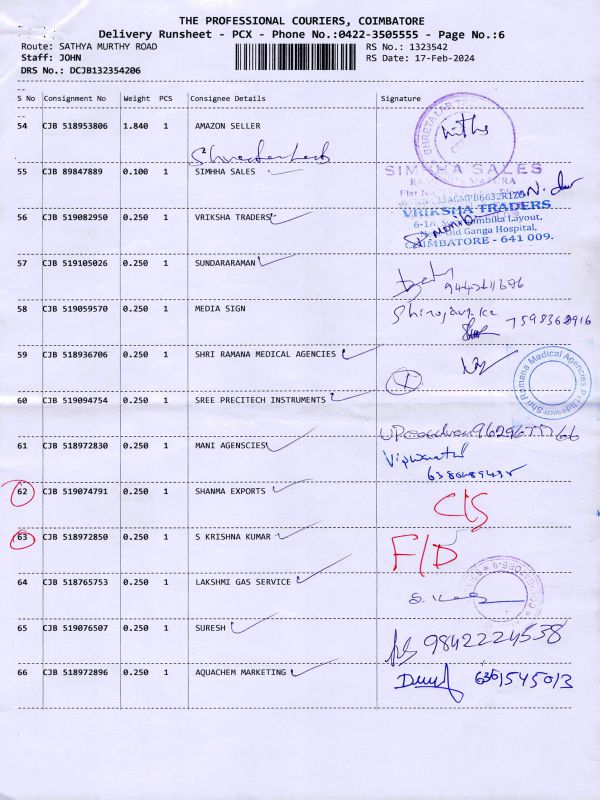 THE PROFESSIONAL COURIERS, COIMBATORE
Delivery Runsheet - PCX - Phone No.:0422-3505555 - Page No.:6
Route: SATHYA MURTHY ROAD RS No.: 1323542
Staff: JOHN RS Date: 17-Feb-2024
DRS No.: DCJB132354206
S No Consignment No Weight PCS Consignee Details Signature
54 CJB 518953806 1.840 1 AMAZON SELLER
55 CJB 89847889 0.100 1 SIMHHA SALES
SIMHHA SALES
56 CJB 519082950 0.250 1 VRIKSHA TRADERS
VRIKSHA TRADERS
Old Ganga Hospital,
COIMBATORE - 641 009.
57 CJB 519105026 0.250 1 SUNDARARAMAN
58 CJB 519059570 0.250 1 MEDIA SIGN
59 CJB 518936706 0.250 1 SHRI RAMANA MEDICAL AGENCIES
Shri Ramana Medical Agencies
60 CJB 519094754 0.250 1 SREE PRECITECH INSTRUMENTS
61 CJB 518972830 0.250 1 MANI AGENSCIES
62 CJB 519074791 0.250 1 SHANMA EXPORTS
63 CJB 518972850 0.250 1 S KRISHNA KUMAR F/D
64 CJB 518765753 0.250 1 LAKSHMI GAS SERVICE
65 CJB 519076507 0.250 1 SURESH 9842224538
66 CJB 518972896 0.250 1 AQUACHEM MARKETING